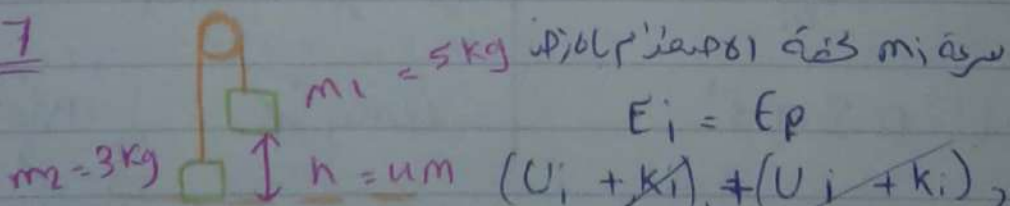 7
m1 = 5kg سرعة m1 لحظة الاصطدام بالارض
Ei = Ef
m2=3Kg h = 4m (Ui + Ki) + (Ui + Ki),